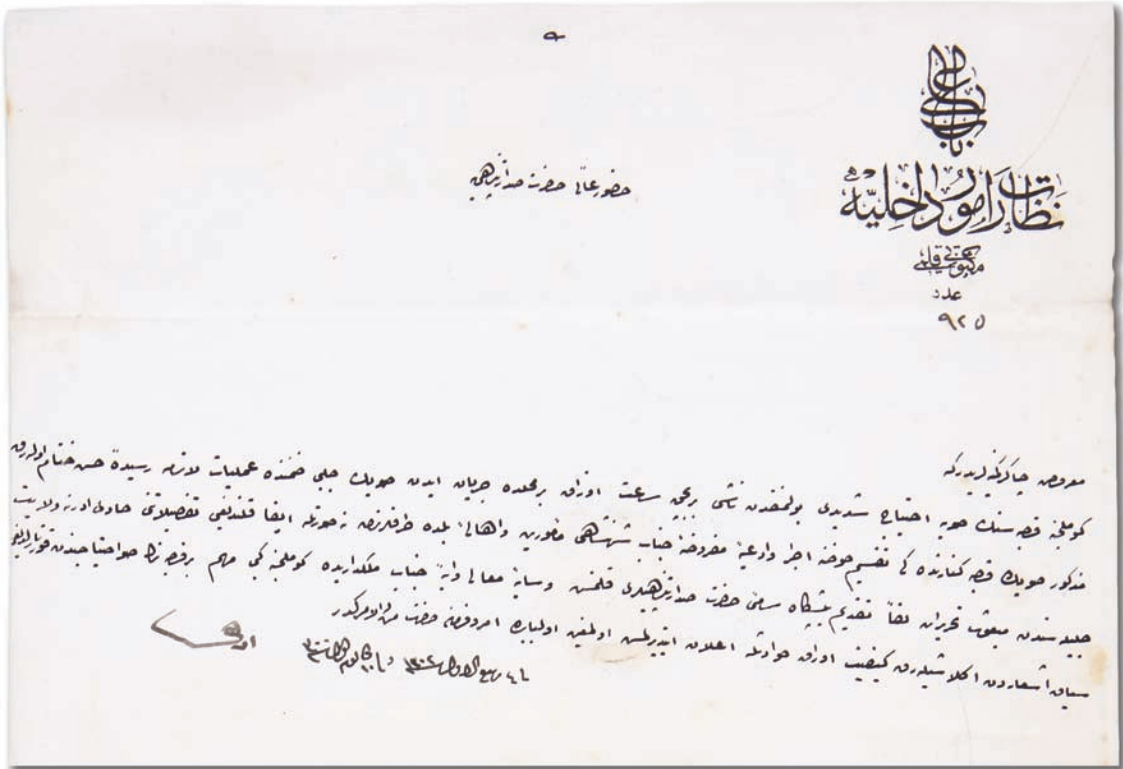 باب عالی
نظارت امور داخلیه
مکتوبی قلمی
عدد
٩٢٥
حضور عالی حضرت صدارتپناهی
معروض چاکرکمینه‌لریدر که
کوملجنه قصبه‌سنك صویه احتیاج شدیدی بولندیغندن ناشی اوزاق بر محلده جریان ایدن صویك جلبی ضمننده عملیات لازمه رسیدهٔ حسن ختام اوله‌رق
مذکور صویك قصبه کنارنده کی تقسیم حوضنه اجرا و ادعیهٔ مفروضهٔ جناب شهنشاهی مأمورین و اهالیٔ بلده طرفلرندن نه صورتله ایفا قلندیغی تفصیلاتنی حاوی ادرنه ولایت
جلیله‌سندن مبعوث تحریرات لفاً تقدیم پیشگاه سامیٔ حضرت صدارتپناهیلری قلنمش و سایهٔ معالی وایهٔ جناب ملکداریده کوملجنه کبی مهم بر قصبه‌نك صو احتیاجندن قورتارلدیغی
سیاق اشعاردن اکلاشیله‌رق کیفیت اوراق حوادثله اعلان ایتدیرلمش اولمغین اولبابده امر و فرمان حضرت من له الامرکدر
ربیع الاول سنه ١٣٠٢